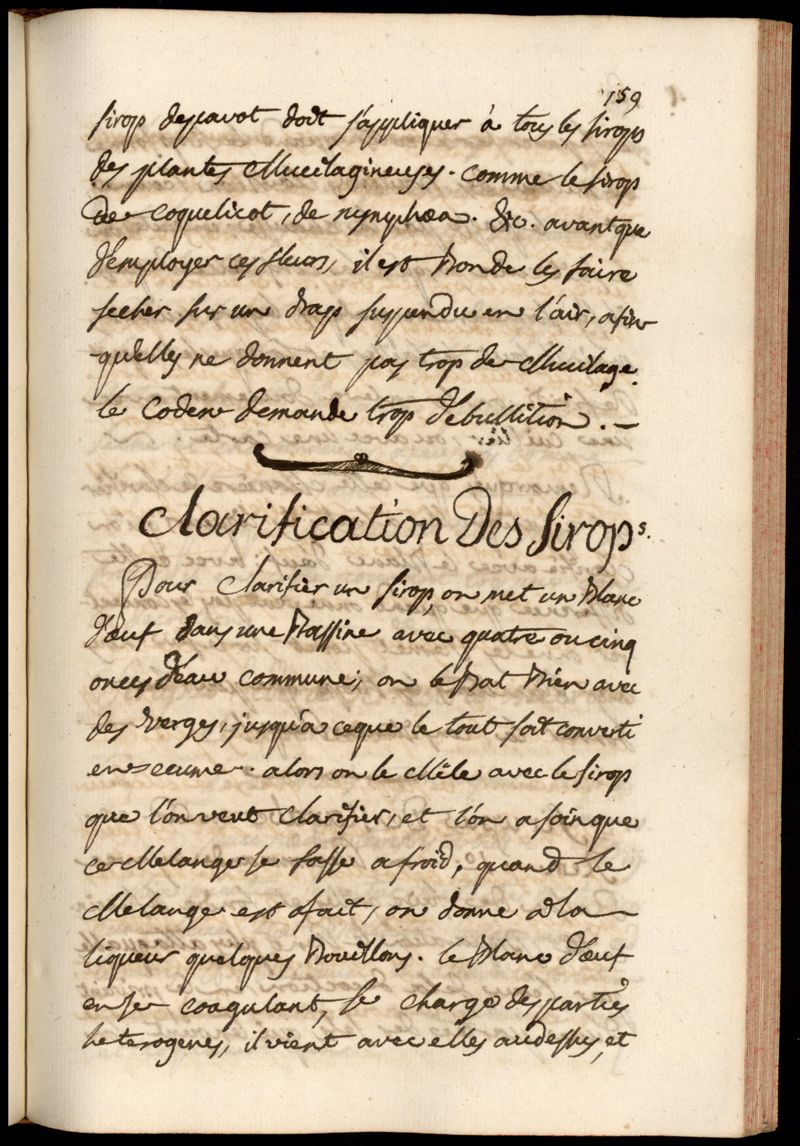 159
sirop depavot doit s'appliquer à tous les sirops
des plantes Mucilagineuses. comme le sirop
De coquelicot, de nymphœa. &c. avantque
d'employer ces fleurs, il est Bon de les faire
secher sur un drap suspendu en l'air, afin
qu'elles ne donnent pas trop de Mucilage.
le codex demande trop d'ebullition. —
Clarification Des Sirops.
Pour Clarifier un sirop, on met un Blanc
d'œuf dans une Bassine avec quatre ou cinq
onces d'eau commune; on le Bat Bien avec
des Verges, jusqu'a ceque le tout soit converti
en ecume. alors on le Mêle avec le sirop
que l'on veut Clarifier, et l'on a soin que
ce Melange se fasse a froid, quand le
Melange est fait, on donne a la
liqueur quelques Bouillons. le Blanc d'œuf
en se coagulant, se charge des parties
heterogenes, il vient avec elles audessus, et